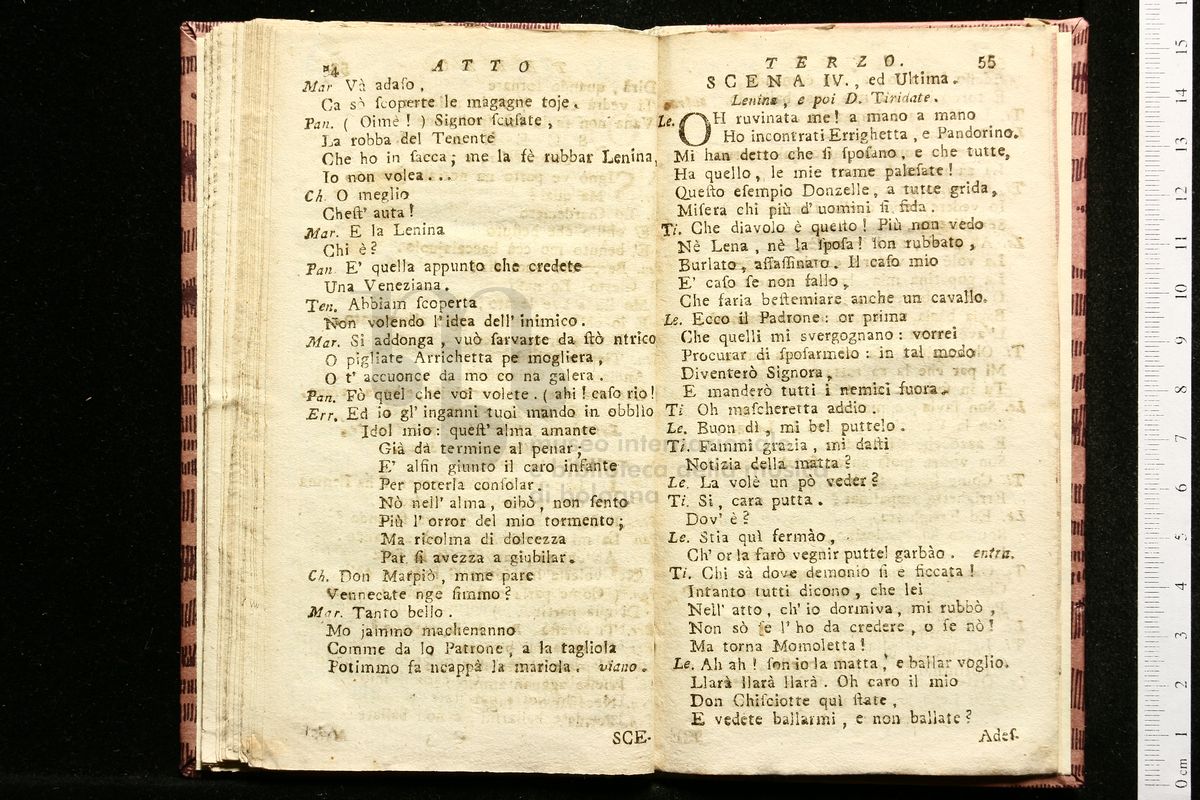 54 ATTO
Mar Và adaſo,
Ca sò ſcoperte le magagne toje.
Pan. ( Oimè! ) Signor ſcuſate,
La robba del Tenente
Che ho in ſacca; me la fè rubbar Lenina,
Io non volea...
Ch. O meglio
Cheſt' auta!
Mar. E la Lenina
Chi è?
Pan E' quella appunto che credete
Una Veneziana.
Ten. Abbiam ſcoperta
Non volendo l'idea dell' inimico.
Mar. Si addonga, vuò ſarvarte da ſtò ntrico
O pigliate Arrichetta pe mogliera,
O t' accuonce da mo co na galera.
Pan. Fò quel che voi volete. ( ahi! caſo rio!
Err. Ed io gl' inganni tuoi mando in obblio
Idol mio: queſt' alma amante
Già da termine al penar;
E' alfin giunto il caro infante
Per poterla conſolar.
Nò nell' alma, oibò, non ſento
Più l' orror del mio tormento;
Ma ricolma di dolcezza
Par ſi avezza a giubilar.
Ch. Don Marpiò, mme pare
Vennecate nge ſimmo?
Mar. Tanto bello.
Mo jammo machenanno
Comme da lo Patrone, a la tagliola
Potimmo fa ncappà la mariola. viano.
SCE-
TERZO. 55
SCENA IV., ed Ultima.
Lenina, e poi D. Tiridate.
Le. OH ruvinata me! a mano a mano
Ho incontrati Errighetta, e Pandorino.
Mi han detto che ſi ſpoſano, e che tutte,
Ha quello, le mie trame paleſate!
Queſto eſempio Donzelle, a tutte grida,
Miſera chi più d' uomini ſi fida.
Ti. Che diavolo è queſto! Più non vedo
Nè Lena, nè la ſpoſa! ſon rubbato,
Burlato, aſſaſſinato. Il caſo mio
E' caſo ſe non fallo,
Che faria beſtemiare anche un cavallo.
Le. Ecco il Padrone: or prima
Che quelli mi svergognano: vorrei
Procurar di ſpoſarmelo: in tal modo
Diventerò Signora,
E manderò tutti i nemici fuora.
Ti Oh maſcheretta addio.
Le. Buon dì, mi bel puttelo.
Ti. Fammi grazia, mi daſti
Notizia della matta?
Le. La volè un pò veder?
Ti. Si, cara putta.
Dov' è?
Le. Stia quì fermào,
Ch' or la farò vegnir puttel garbào. entra.
Ti. Chi sà dove demonio ſi e ficcata!
Intanto tutti dicono, che lei
Nell' atto, ch' io dormiva, mi rubbò,
Non sò ſe l' ho da credere, o ſe nò!
Ma torna Momoletta!
Le. Ah ah! ſon io la matta, e ballar voglio.
Llarà llarà llarà. Oh caro il mio
Don Chiſciotte quì ſtate,
E vedete ballarmi, e non ballate?
Adeſ-
museo internazionale
e biblioteca della musica
di bologna